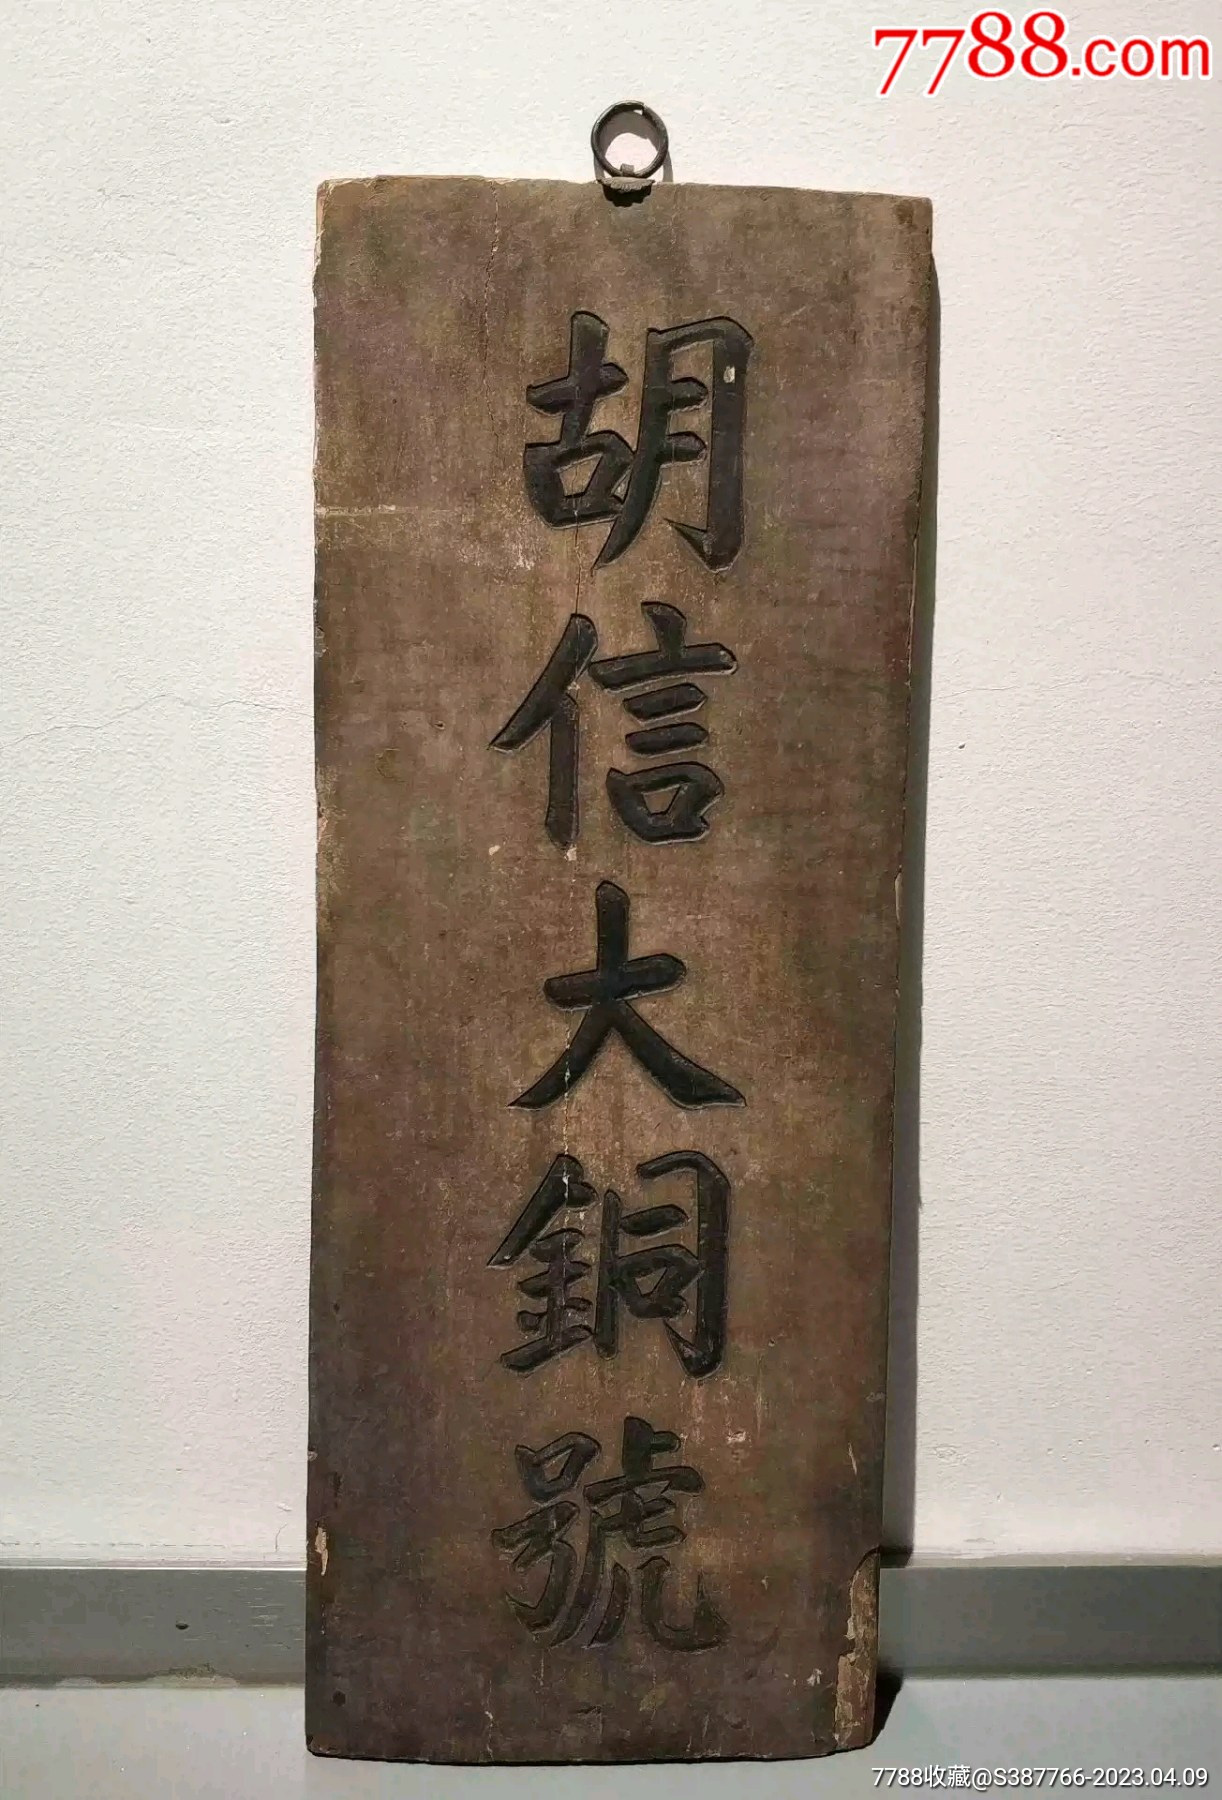 7788.com
胡信大銅號
7788收藏@S387766-2023.04.09